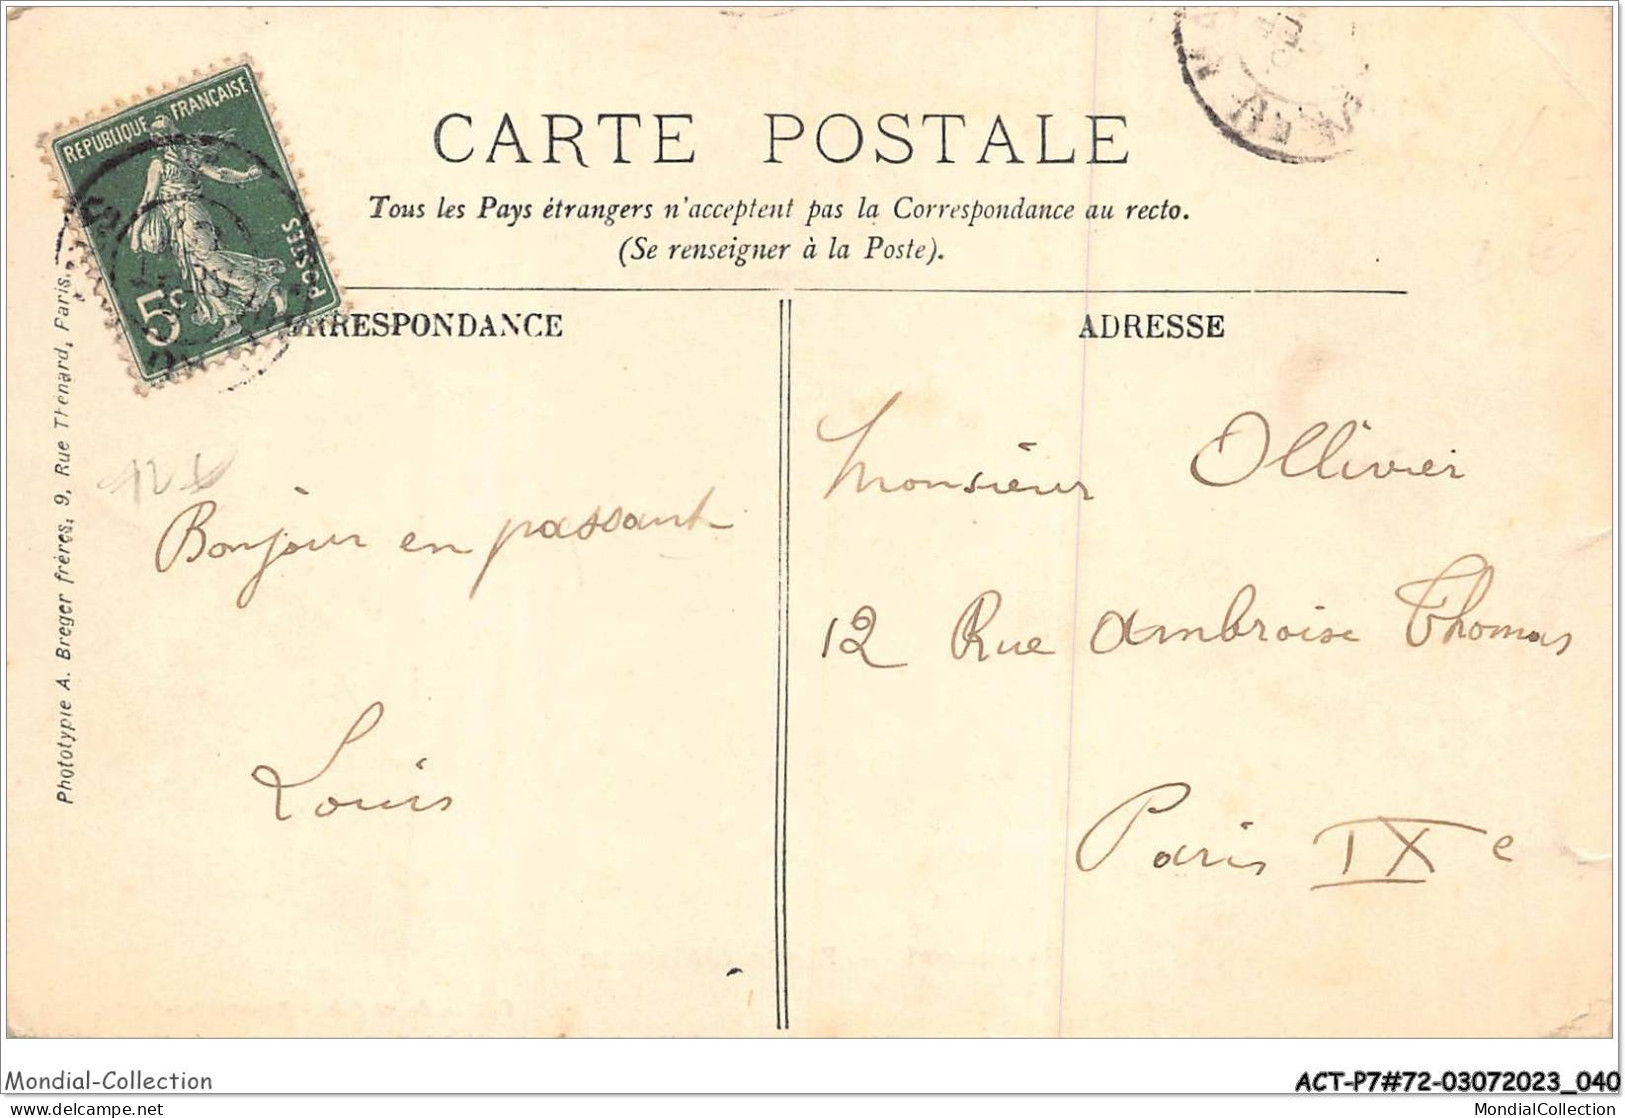 CARTE POSTALE
Tous les Pays étrangers n'acceptent pas la Correspondance au recto.
(Se renseigner à la Poste).
REPUBLIQUE FRANÇAISE
POSTES
5c
CORRESPONDANCE
ADRESSE
Phototypie A. Breger frères, 9, Rue Thénard, Paris.
Bonjour en passant
Louis
Monsieur Ollivier
12 Rue Ambroise Thomas
Paris IXe
Mondial-Collection
ACT-P7#72-03072023_040
MondialCollection
MondialCollection